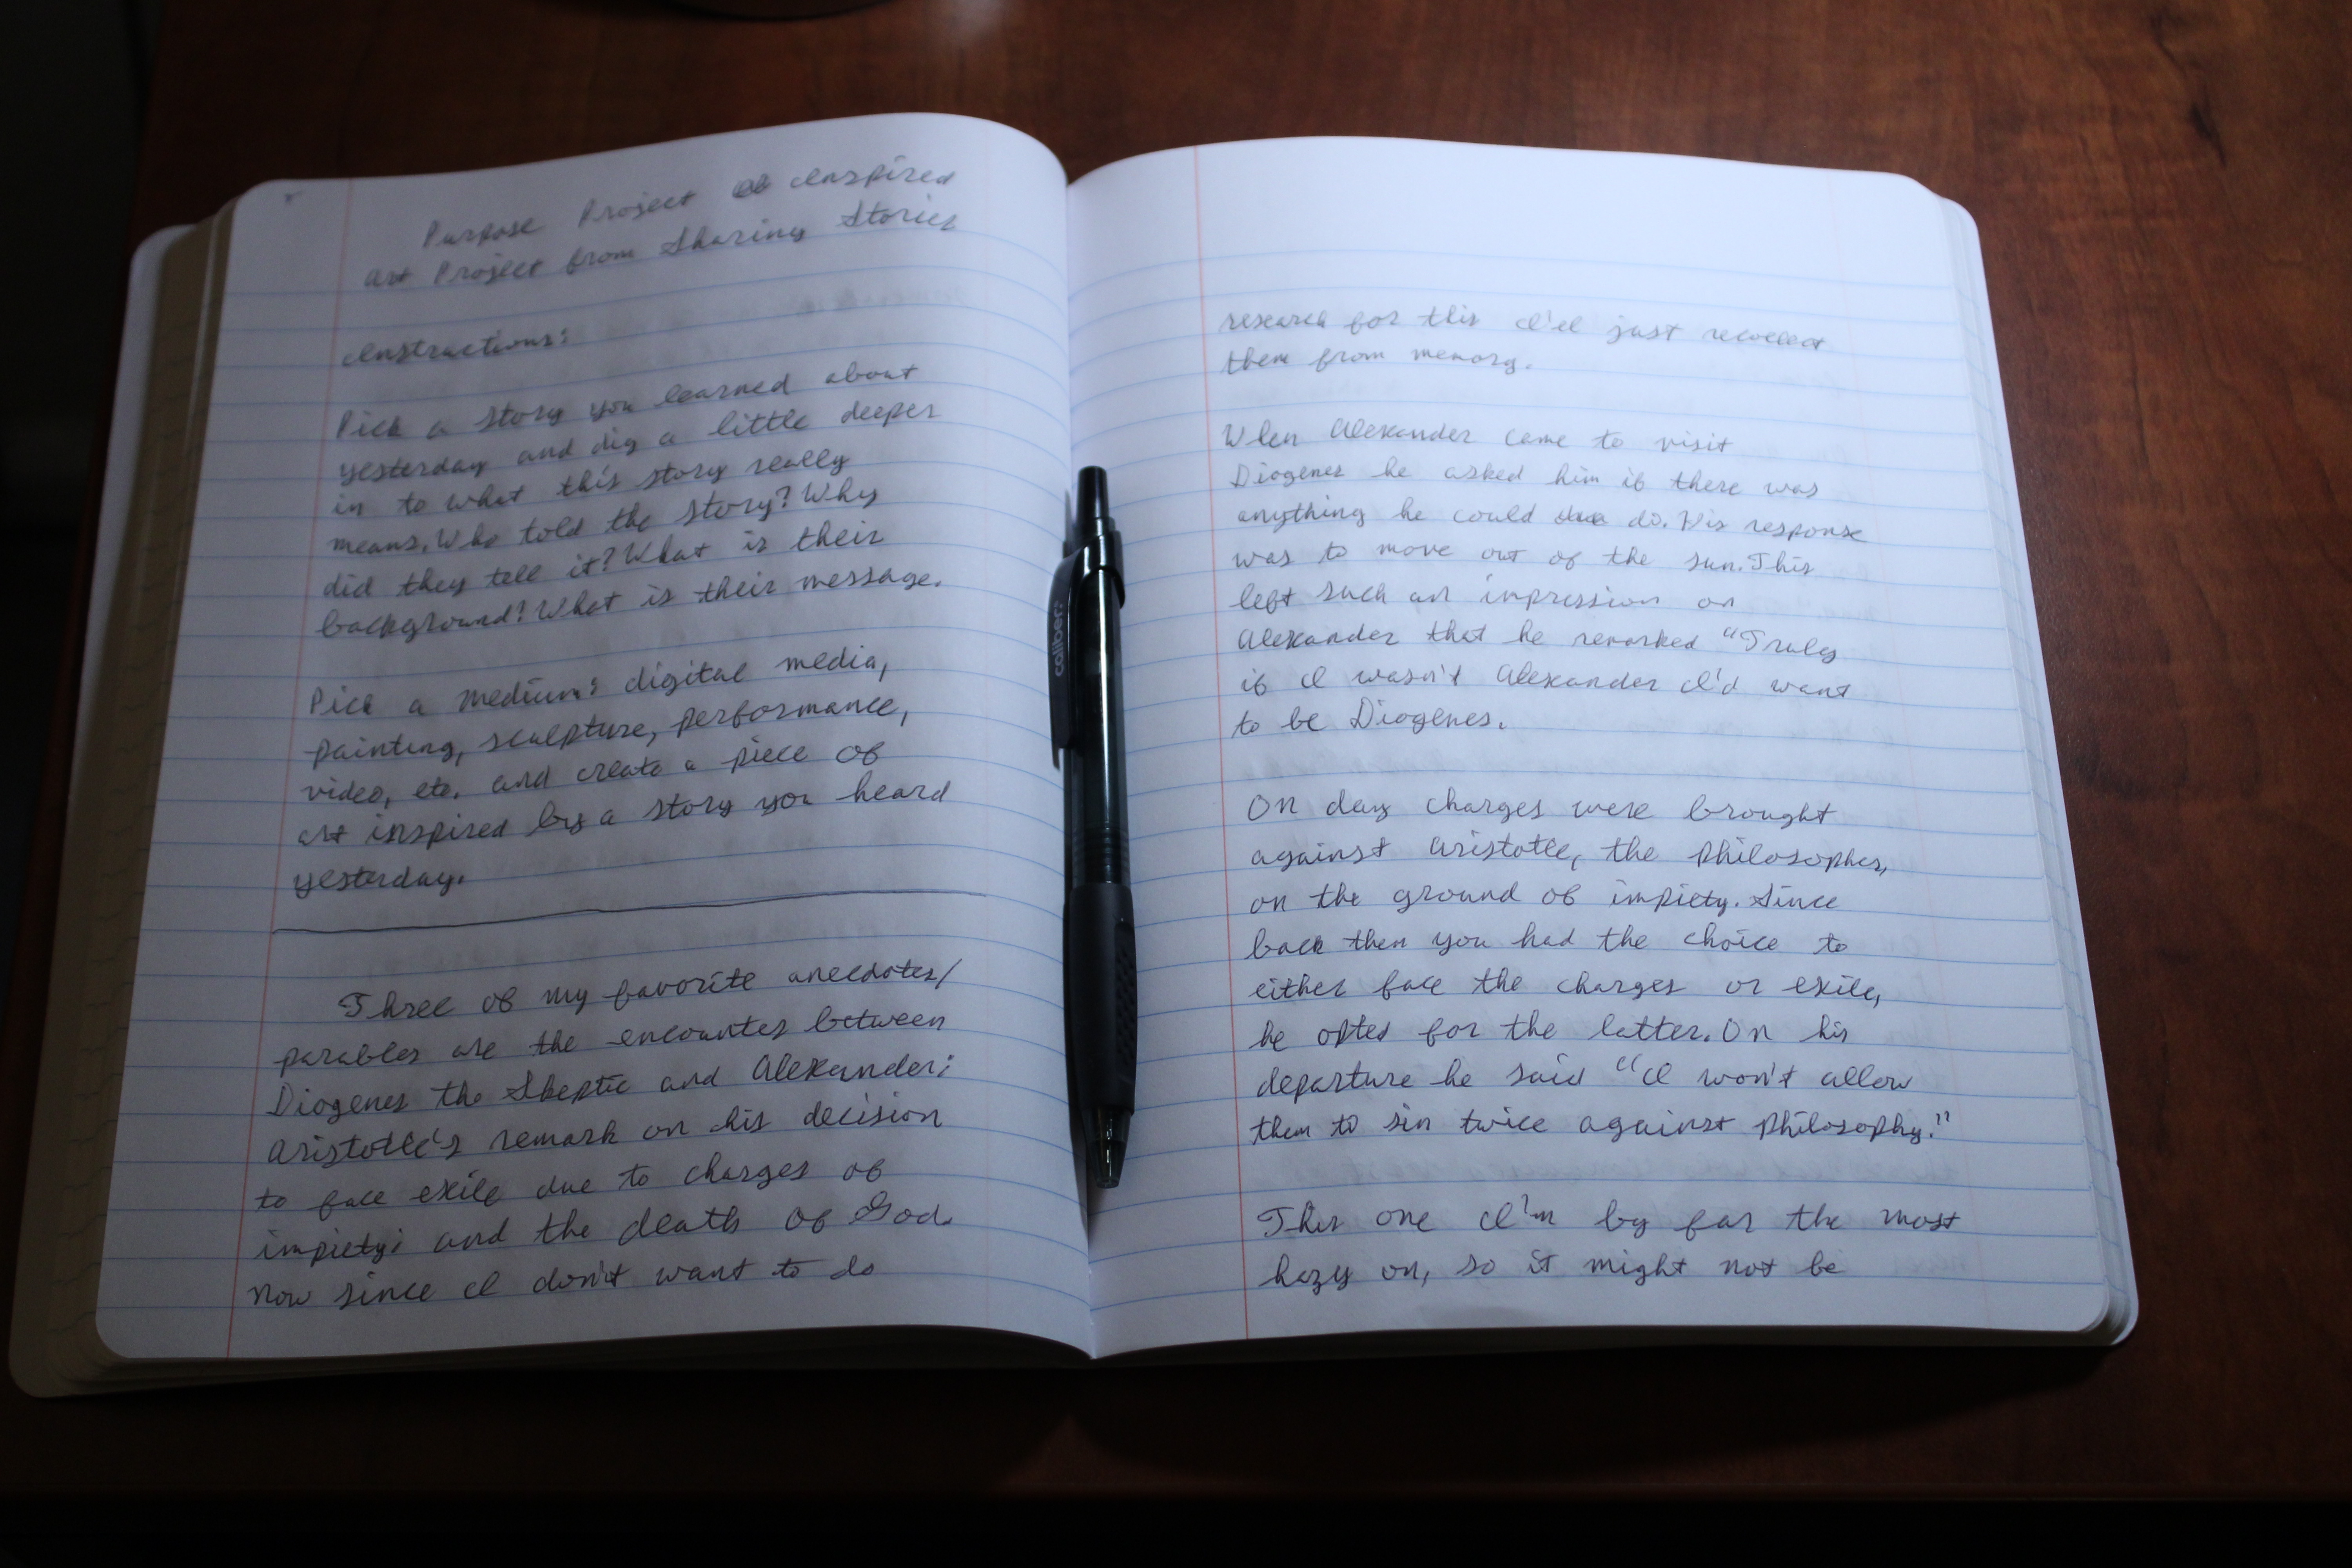 Purpose Project Inspired
Art Project from Sharing Stories
Instructions:
Pick a story you learned about
yesterday and dig a little deeper
in to what this story really
means. Who told the story? Why
did they tell it? What is their
background? What is their message.
Pick a medium: digital media,
painting, sculpture, performance,
video, etc. and create a piece of
art inspired by a story you heard
yesterday.
Three of my favorite anecdotes/
parables are the encounter between
Diogenes the Skeptic and Alexander;
Aristotle's remark on his decision
to face exile due to charges of
impiety; and the death of God.
Now since I don't want to do
caliber:
research for this I'll just recollect
them from memory.
When Alexander came to visit
Diogenes he asked him if there was
anything he could do. His response
was to move out of the sun. This
left such an impression on
Alexander that he remarked "Truly
if I wasn't Alexander I'd want
to be Diogenes.
On day charges were brought
against Aristotle, the Philosopher,
on the ground of impiety. Since
back then you had the choice to
either face the charges or exile,
he opted for the latter. On his
departure he said "I won't allow
them to sin twice against Philosophy."
This one I'm by far the most
hazy on, so it might not be